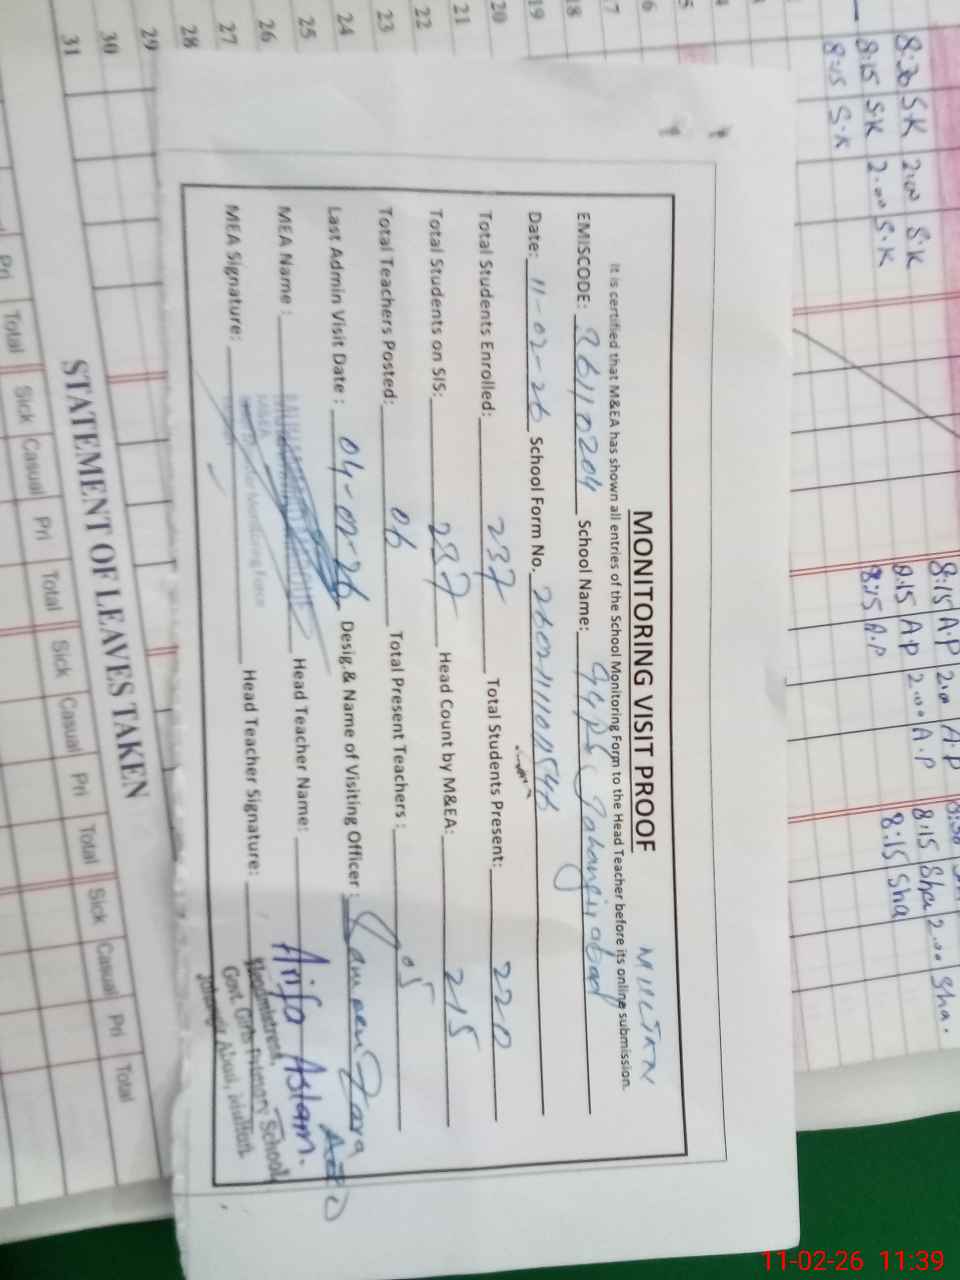 MONITORING VISIT PROOF
MULTAN
It is certified that M&EA has shown all entries of the School Monitoring Form to the Head Teacher before its online submission.
EMISCODE: 36110204 School Name: GGPS Jahangirabad
Date: 11-02-26 School Form No.
Total Students Enrolled: 237 Total Students Present: 220
Total Students on SIS: 237 Head Count by M&EA: 215
Total Teachers Posted: 06 Total Present Teachers: 05
Last Admin Visit Date: 04-02-26 Desig.& Name of Visiting Officer: Zara
AEO
MEA Name: Head Teacher Name: Arifa Aslam.
MEA Signature: Monitoring Force Head Teacher Signature:
Headmistress,
Govt. Girls Primary School
Jahangir Abad, Multan
8:30 S.K 2:00 S.K
8:15 S.K 2:00 S.K
8:15 S.K
8:15 A.P 2:00 A.P
8:15 A.P 2:00 A.P
8:15 A.P
8:15 Sha 2:00 Sha.
8:15 Sha
17
18
19
20
21
22
23
24
25
26
27
28
29
30
31
STATEMENT OF LEAVES TAKEN
Pri Total Sick Casual Pri Total Sick Casual Pri Total Sick Casual Pri Total
11-02-26 11:39